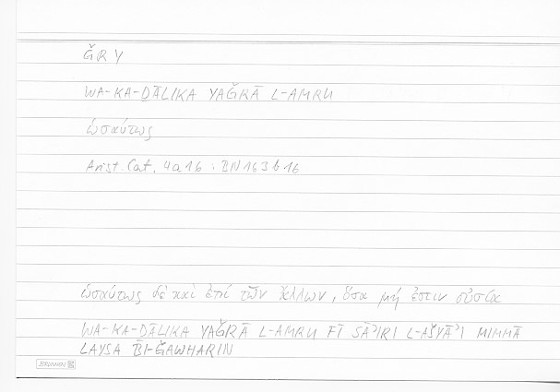 ǦRY
WA-KA-ḎĀLIKA YAǦRĀ L-AMRU
ὡσαύτως
Arist. Cat. 4a16 :
ὡσαύτως δὲ καὶ ἐπὶ τῶν ἄλλων, ὅσα μή ἐστιν οὐσία
WA-KA-ḎĀLIKA YAǦRĀ L-AMRU FĪ SĀʾIRI L-AŠYĀʾI MIMMĀ
LAYSA BI-ǦAWHARIN